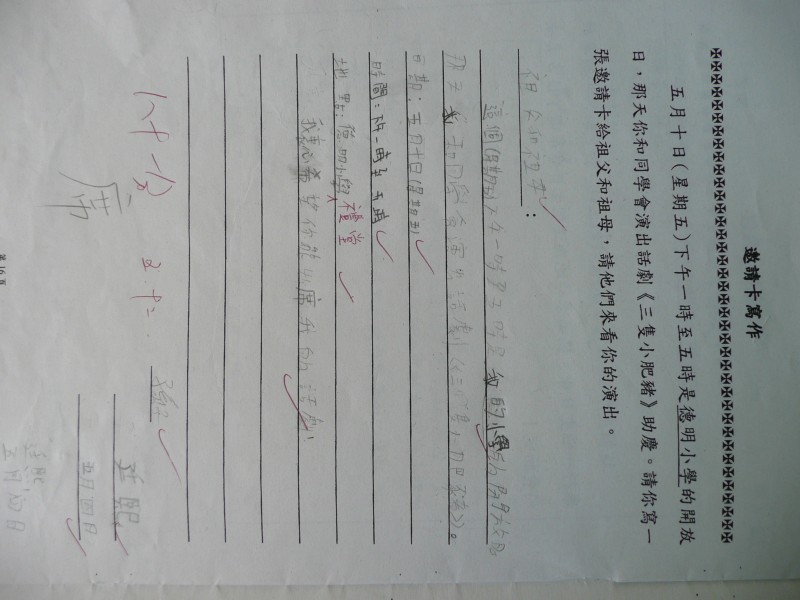 邀請卡寫作
五月十日(星期五)下午一時至五時是德明小學的開放
日，那天你和同學會演出話劇《三隻小肥豬》助慶。請你寫一
張邀請卡給祖父和祖母，請他們來看你的演出。
祖父和祖母：
這個(星期五)下午一時至五時是 的小學 開放日
那天我和同學會演出話劇《三隻小肥豬》。
日期：五月十日(星期五)
時間：下午一時至五時
地點：德明小學禮堂
我衷心希望你能出席我的話劇
孫
五月 日
席
第16頁